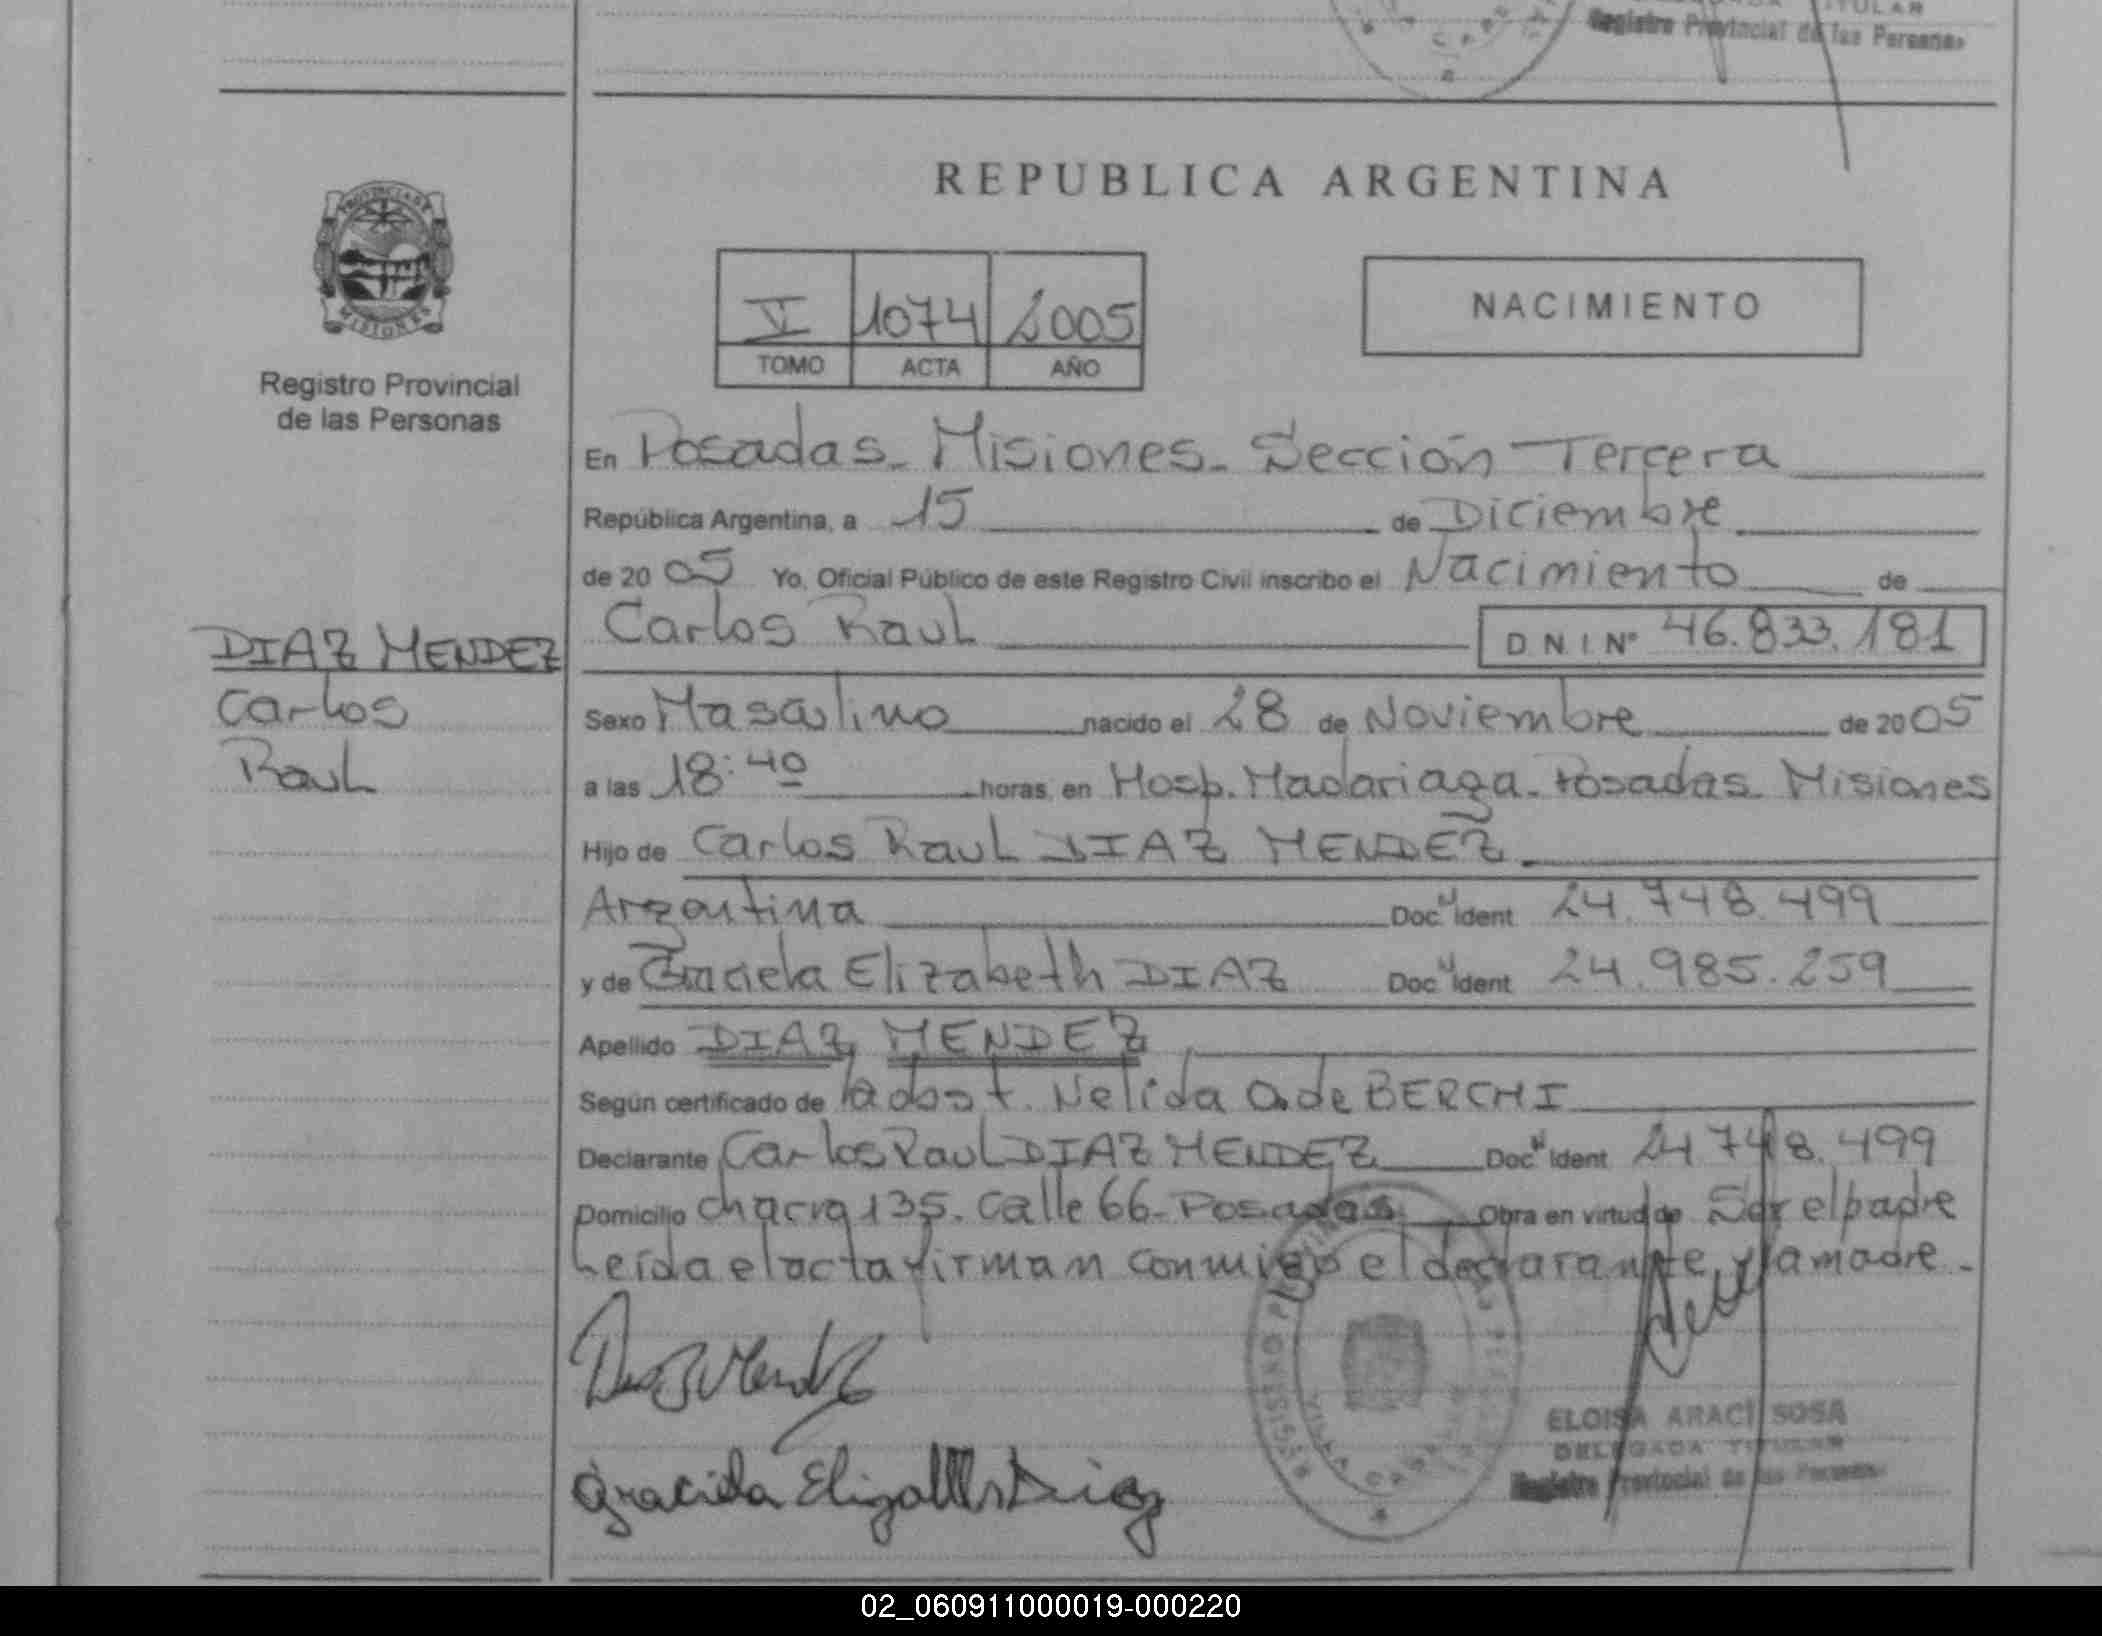 TITULAR
Registro Provincial de las Personas
REPUBLICA ARGENTINA
PROVINCIA DE
MISIONES
Registro Provincial
de las Personas
V 1074 2005
TOMO ACTA AÑO
NACIMIENTO
En Posadas - Misiones - Sección Tercera
República Argentina, a 15 de Diciembre
de 20 05 Yo, Oficial Público de este Registro Civil inscribo el Nacimiento de
Carlos Raul D.N.I. Nº 46.833.181
DIAZ MENDEZ
Carlos
Raul
Sexo Masculino nacido el 28 de Noviembre de 20 05
a las 18:40 horas, en Hosp. Madariaga - Posadas - Misiones
Hijo de Carlos Raul DIAZ MENDEZ
Argentina Doc N Ident 24.748.499
y de Graciela Elizabeth DIAZ Doc N Ident 24.985.259
Apellido DIAZ MENDEZ
Según certificado de Nelida de BERCHI
Declarante Carlos Raul DIAZ MENDEZ Doc N Ident 24.748.499
Domicilio chacra 135. Calle 66 - Posadas Obra en virtud de Ser el padre
Leída el acta firman conmigo el declarante y la madre.
Graciela Elizabeth Diaz
ELOISA ARACI SOSA
DELEGADA TITULAR
Registro Provincial de las Personas
02_060911000019-000220